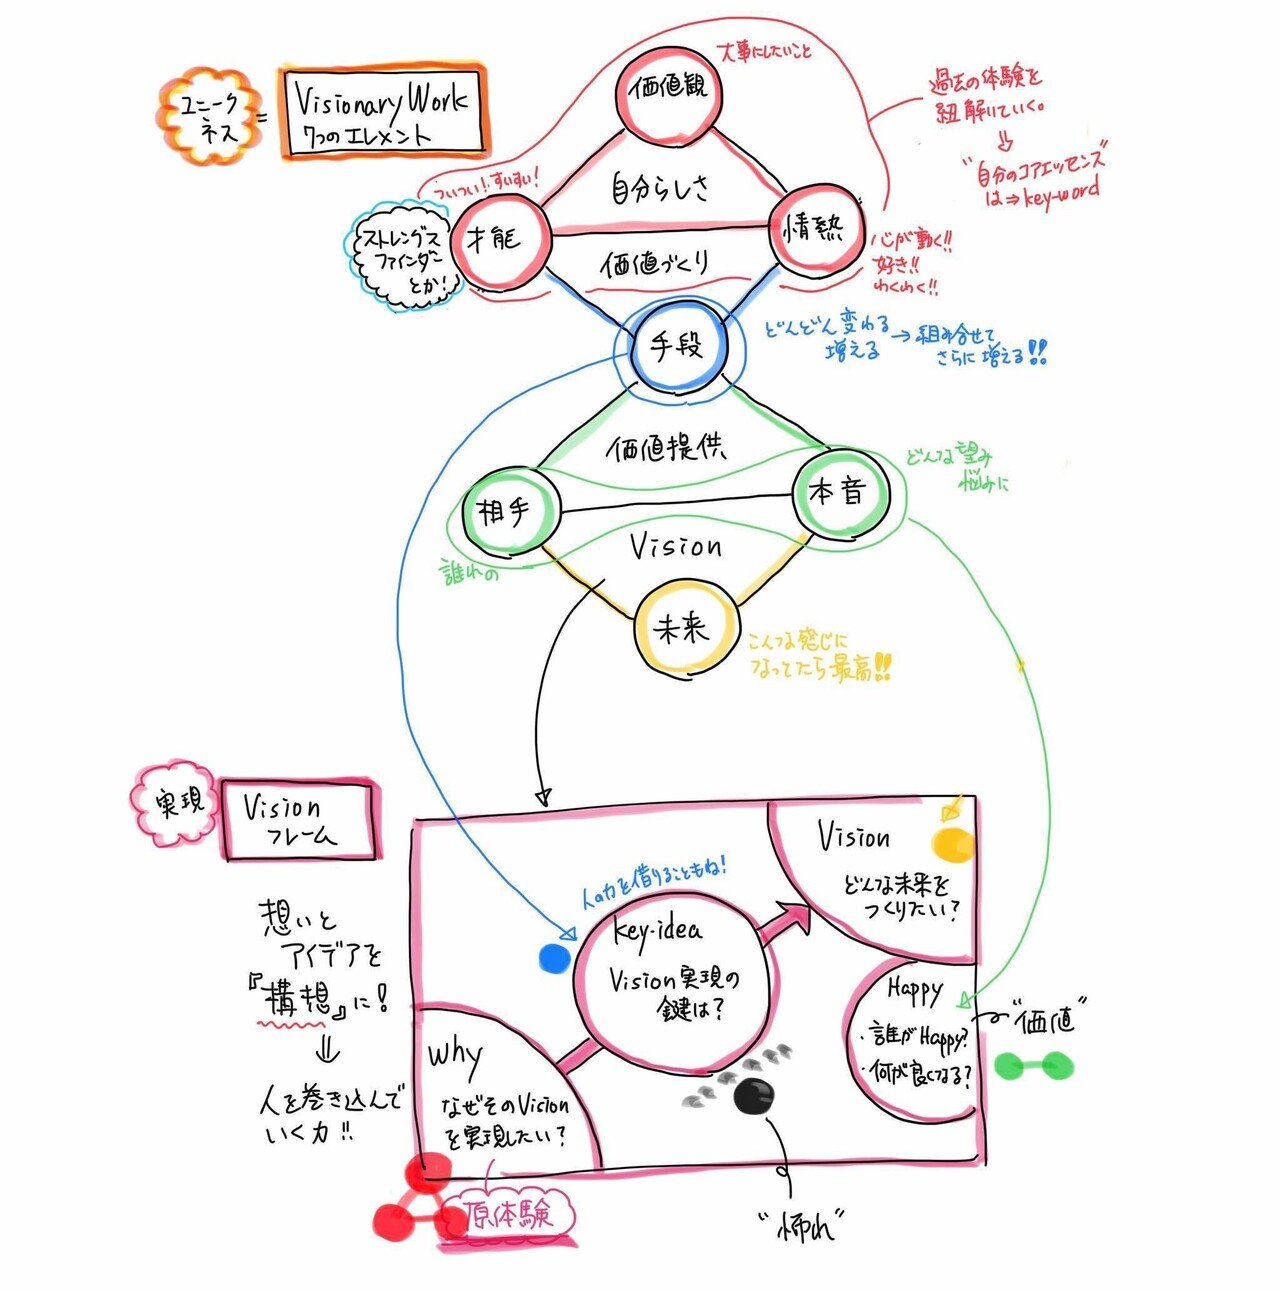 ユニーク
ネス
=
Visionary Work
7つのエレメント
価値観
大事にしたいこと
過去の体験を
紐解いていく。
⇒
"自分のコアエッセンス"
は⇒key-word
自分らしさ
ついつい!すいすい!
才能
ストレングス
ファインダー
とか!
情熱
心が動く!!
好き!!
わくわく!!
価値づくり
手段
どんどん変わる
増える
→組み合せて
さらに増える!!
価値提供
相手
誰れの
本音
どんな望み
悩みに
Vision
未来
こんな感じに
なってたら最高!!
実現
Vision
フレーム
想いと
アイデアを
『構想』に!
⇓
人を巻き込んで
いく力!!
人の力を借りることもね!
key-idea
Vision実現の
鍵は?
Vision
どんな未来を
つくりたい?
Happy
・誰がHappy?
・何が良くなる?
"価値"
Why
なぜそのVision
を実現したい?
原体験
"怖れ"